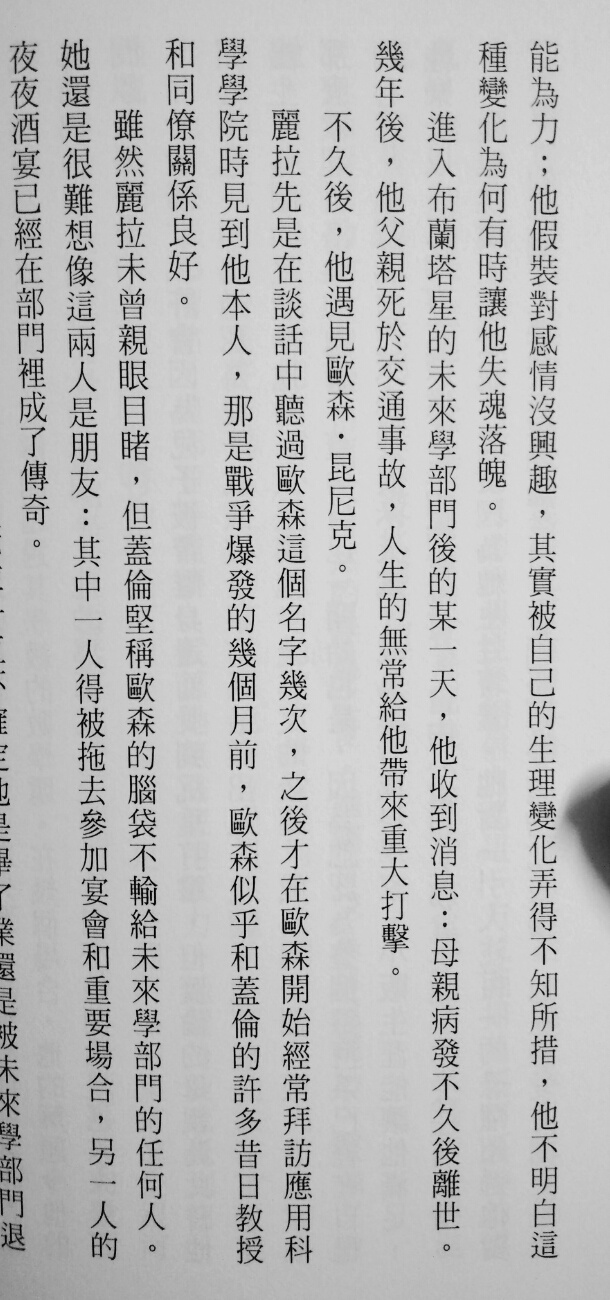 能為力；他假裝對感情沒興趣，其實被自己的生理變化弄得不知所措，他不明白這
種變化為何有時讓他失魂落魄。
進入布蘭塔星的未來學部門後的某一天，他收到消息：母親病發不久後離世。
幾年後，他父親死於交通事故，人生的無常給他帶來重大打擊。
不久後，他遇見歐森・昆尼克。
麗拉先是在談話中聽過歐森這個名字幾次，之後才在歐森開始經常拜訪應用科
學學院時見到他本人，那是戰爭爆發的幾個月前，歐森似乎和蓋倫的許多昔日教授
和同僚關係良好。
雖然麗拉未曾親眼目睹，但蓋倫堅稱歐森的腦袋不輸給未來學部門的任何人。
她還是很難想像這兩人是朋友：其中一人得被拖去參加宴會和重要場合，另一人的
夜夜酒宴已經在部門裡成了傳奇。
確定他是畢了業還是被未來學部門退